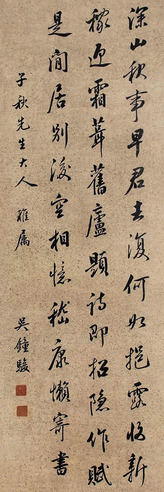 深山秋事早君去復何如挹露收新
稼迎霜葺舊廬題詩即招隱作賦
是閒居別後空相憶嵇康懶寄書
子秋先生大人 雅屬
吳鍾駿